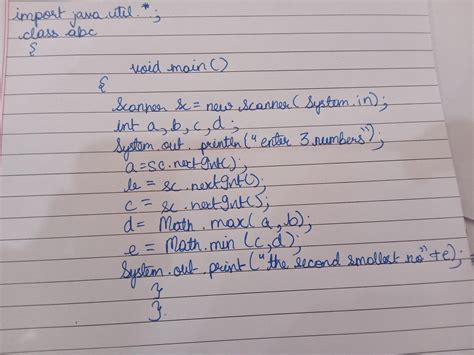 import java.util.*;
class abc
{
void main()
{
Scanner sc = new scanner(System.in);
int a, b, c, d;
System.out.println("enter 3 numbers");
a = sc.nextInt();
b = sc.nextInt();
c = sc.nextInt();
d = Math.max(a, b);
e = Math.min(c, d);
System.out.print("the second smallest no" + e);
}
}